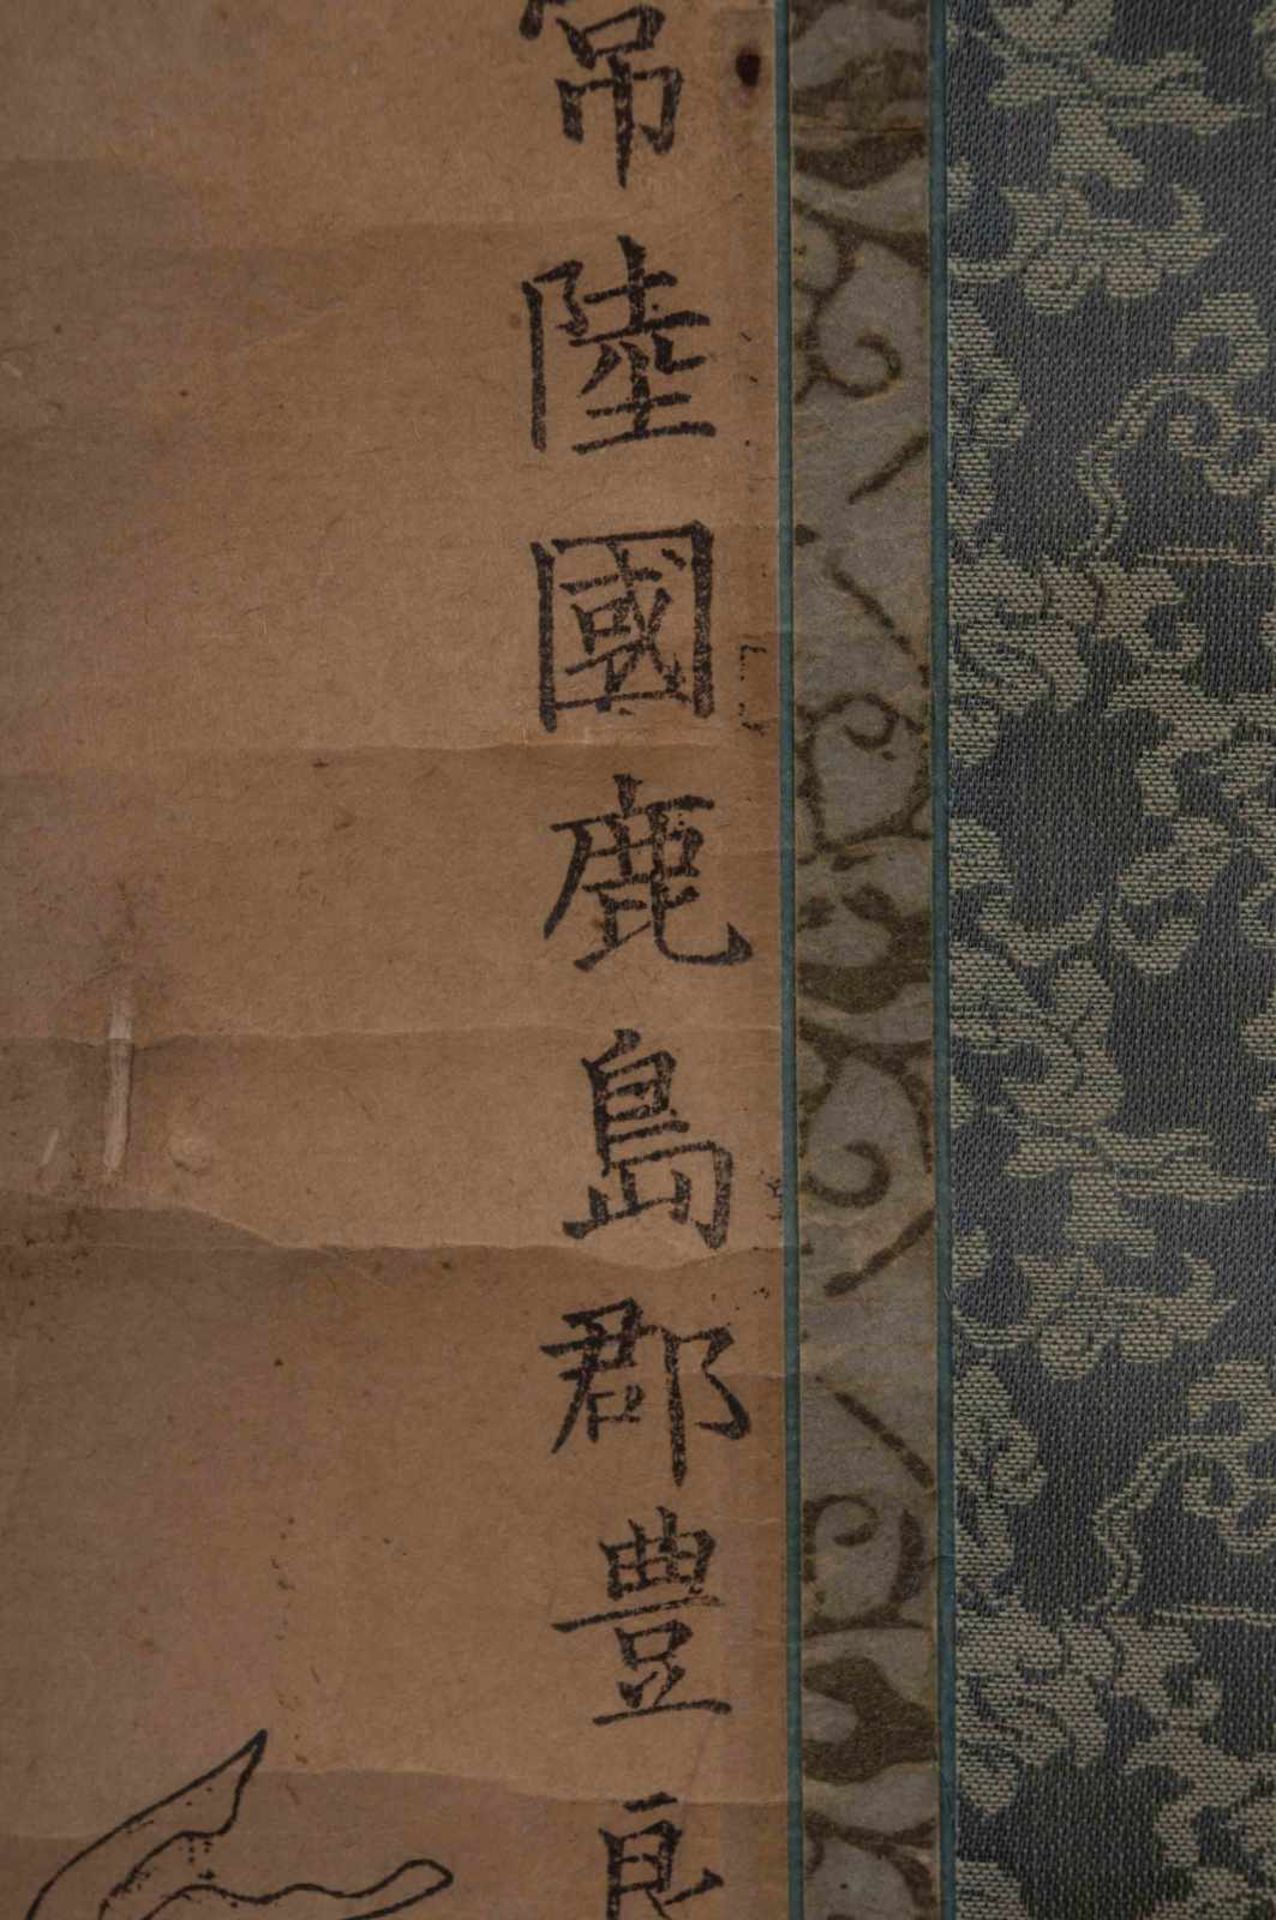 常陸國鹿島郡豊良